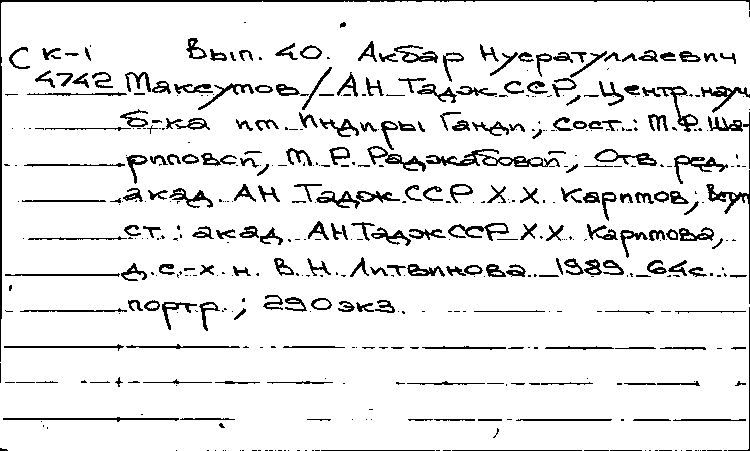 С К-1 Вып. 40. Акбар Нусратуллаевич
4742 Максумов / АН Тадж ССР, Центр. науч.
б-ка им. Индиры Ганди; сост.: М.Ф. Ша-
риповой, М. Р. Раджабовой; Отв. ред.:
акад. АН Тадж ССР Х.Х. Каримов; Вступ.
ст.: акад. АН Тадж ССР Х.Х. Каримова,
д. с.-х. н. В. Н. Литвинова. 1989. 64 с.:
портр.; 290 экз.